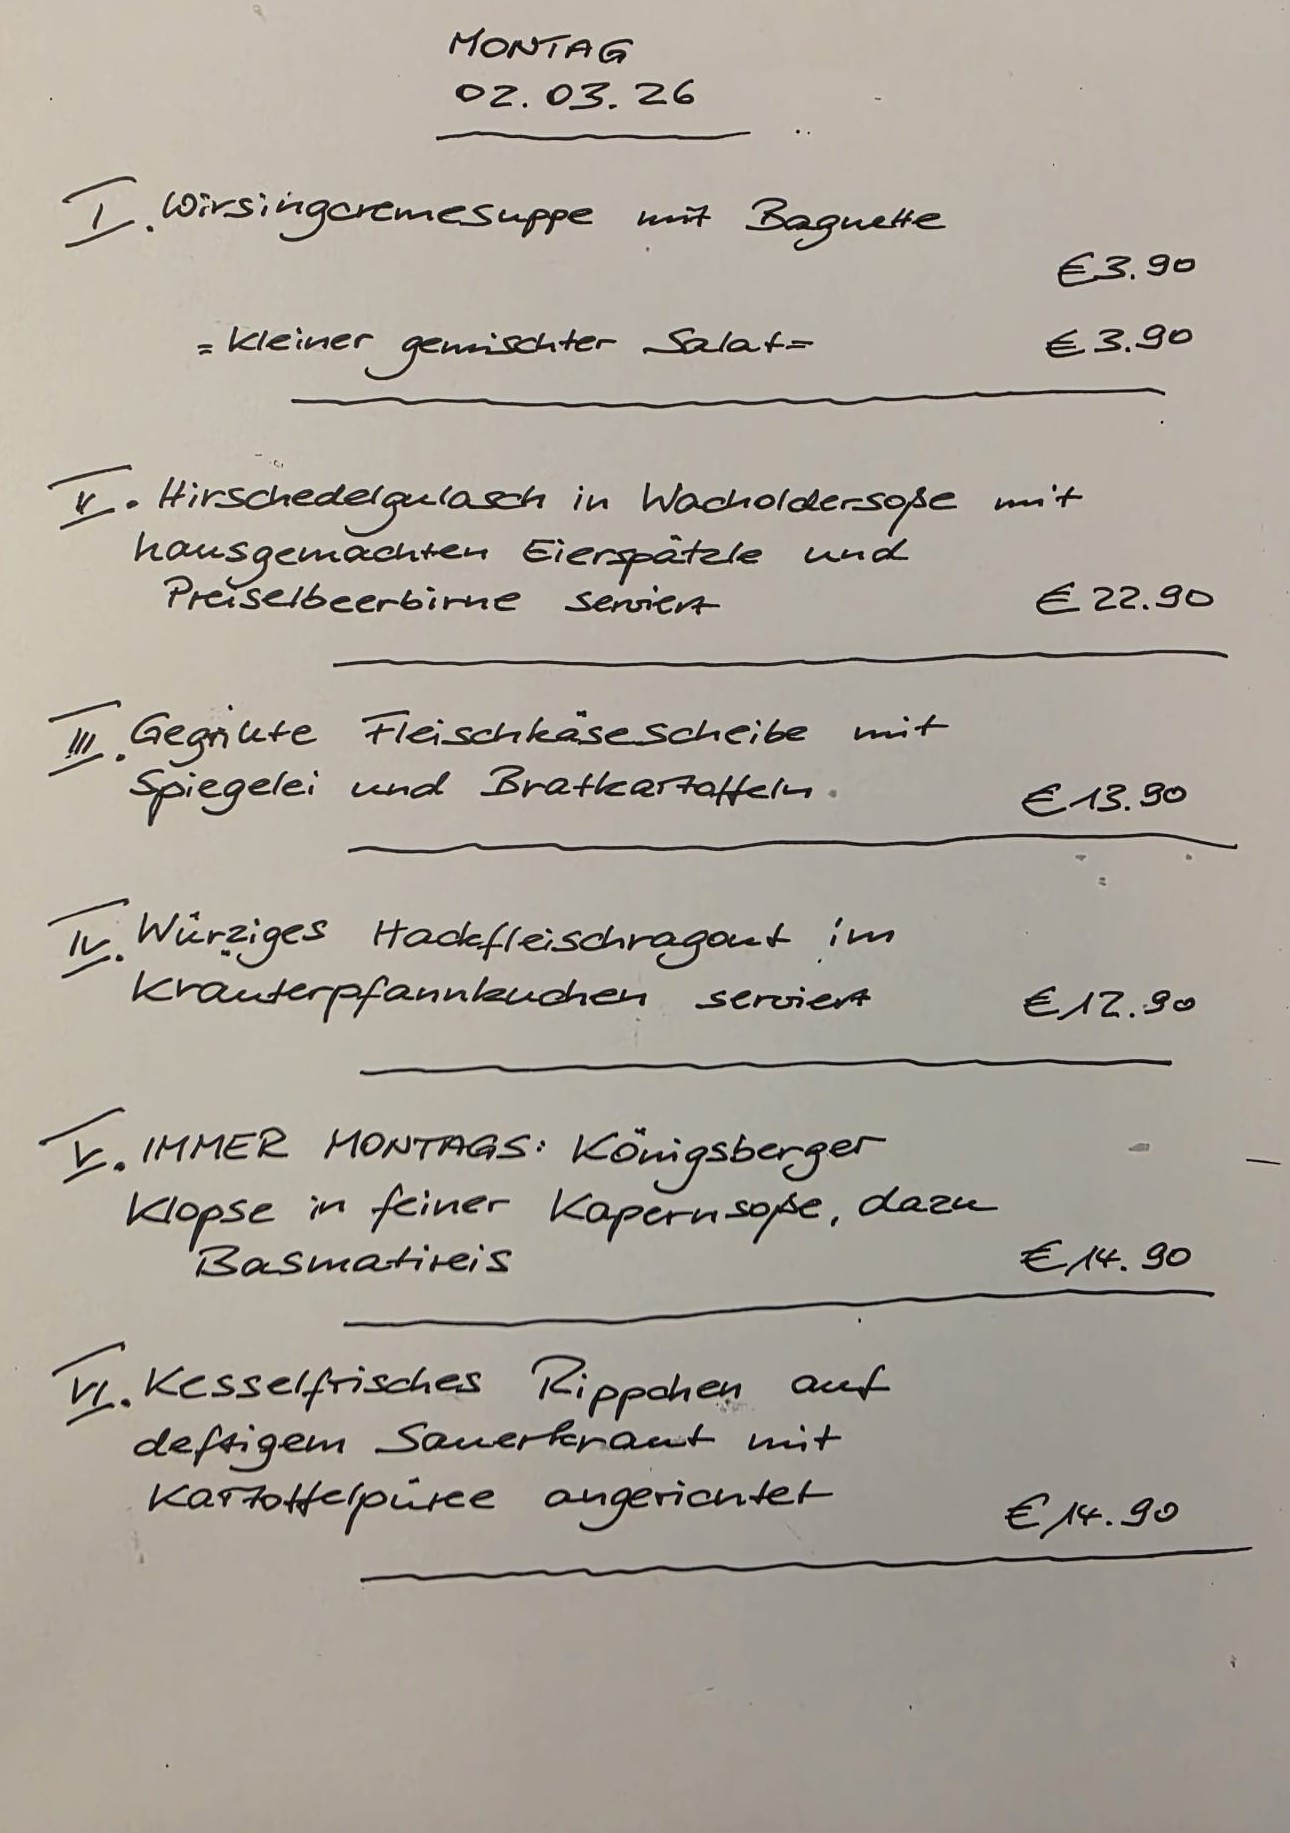 MONTAG
02.03.26
I. Wirsingcremesuppe mit Baguette
€3.90
= kleiner gemischter Salat = €3.90
II. Hirschedelgulasch in Wacholdersoße mit
hausgemachten Eierspätzle und
Preiselbeerbirne serviert €22.90
III. Gegrillte Fleischkäsescheibe mit
Spiegelei und Bratkartoffeln. €13.90
IV. Würziges Hackfleischragout im
Kräuterpfannkuchen serviert €12.90
V. IMMER MONTAGS: Königsberger
Klopse in feiner Kapernsoße, dazu
Basmatireis €14.90
VI. Kesselfrisches Rippchen auf
deftigem Sauerkraut mit
Kartoffelpüree angerichtet
€14.90